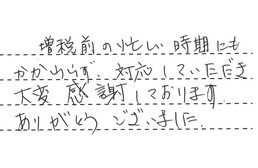 増税前の忙しい時期にも
かかわらず、対応していただき
大変感謝しております。
ありがとうございました。